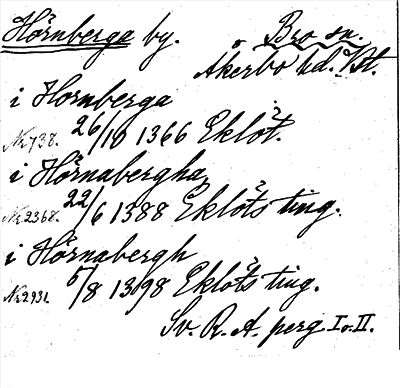 Hörnberga by. Bro sn.
Åkerbo hd. Vstl.
i Hornberga
Nr 738. 26/10 1366 Eklöt.
i Hörnabergha
Nr 2368. 22/6 1388 Eklöts ting.
i Hörnabergh
Nr 2931. 5/8 1398 Eklöts ting.
Sv. R. A. perg I o. II.